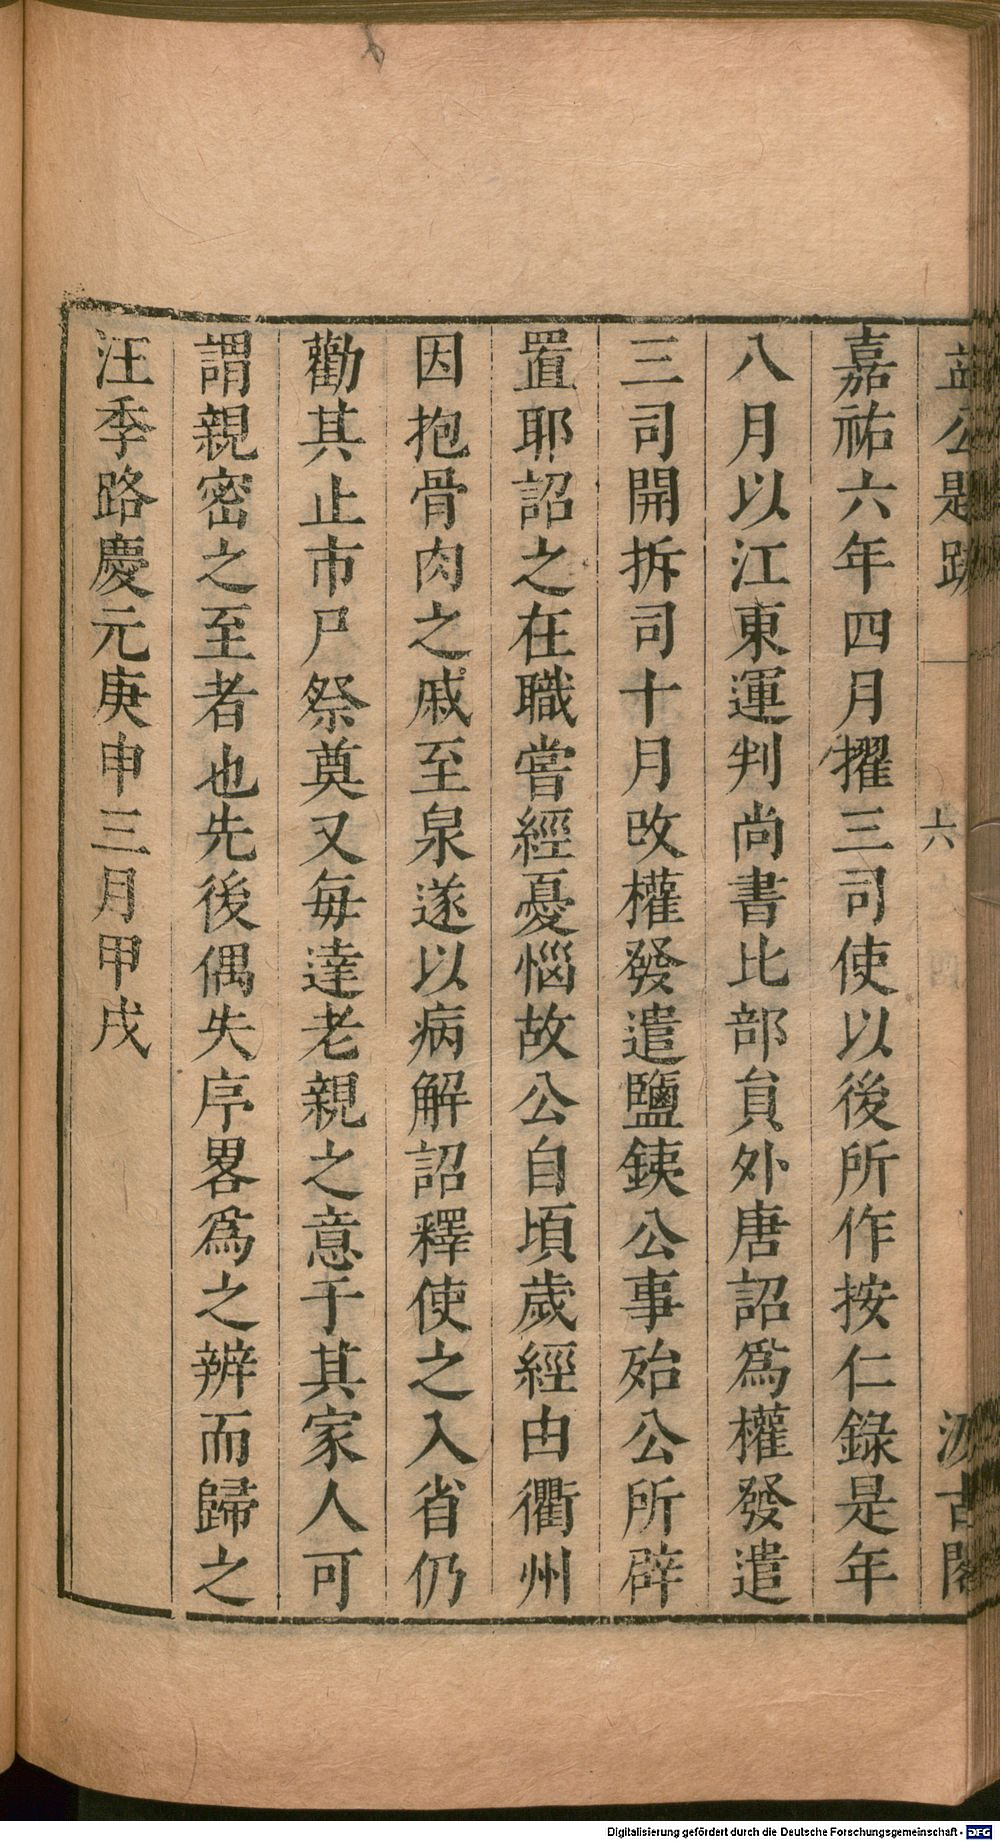 益公題跋 六 汲古閣
嘉祐六年四月擢三司使以後所作按仁錄是年
八月以江東運判尚書比部貟外唐詔爲權發遣
三司開拆司十月攺權發遣鹽鉄公事殆公所辟
置耶詔之在職嘗經憂惱故公自頃歲經由衢州
因抱骨肉之戚至泉遂以病解詔釋使之入省仍
勸其止市尸祭奠又每達老親之意于其家人可
謂親密之至者也先後偶失序畧爲之辨而歸之
汪季路慶元庚申三月甲戌
Digitalisierung gefördert durch die Deutsche Forschungsgemeinschaft - DFG